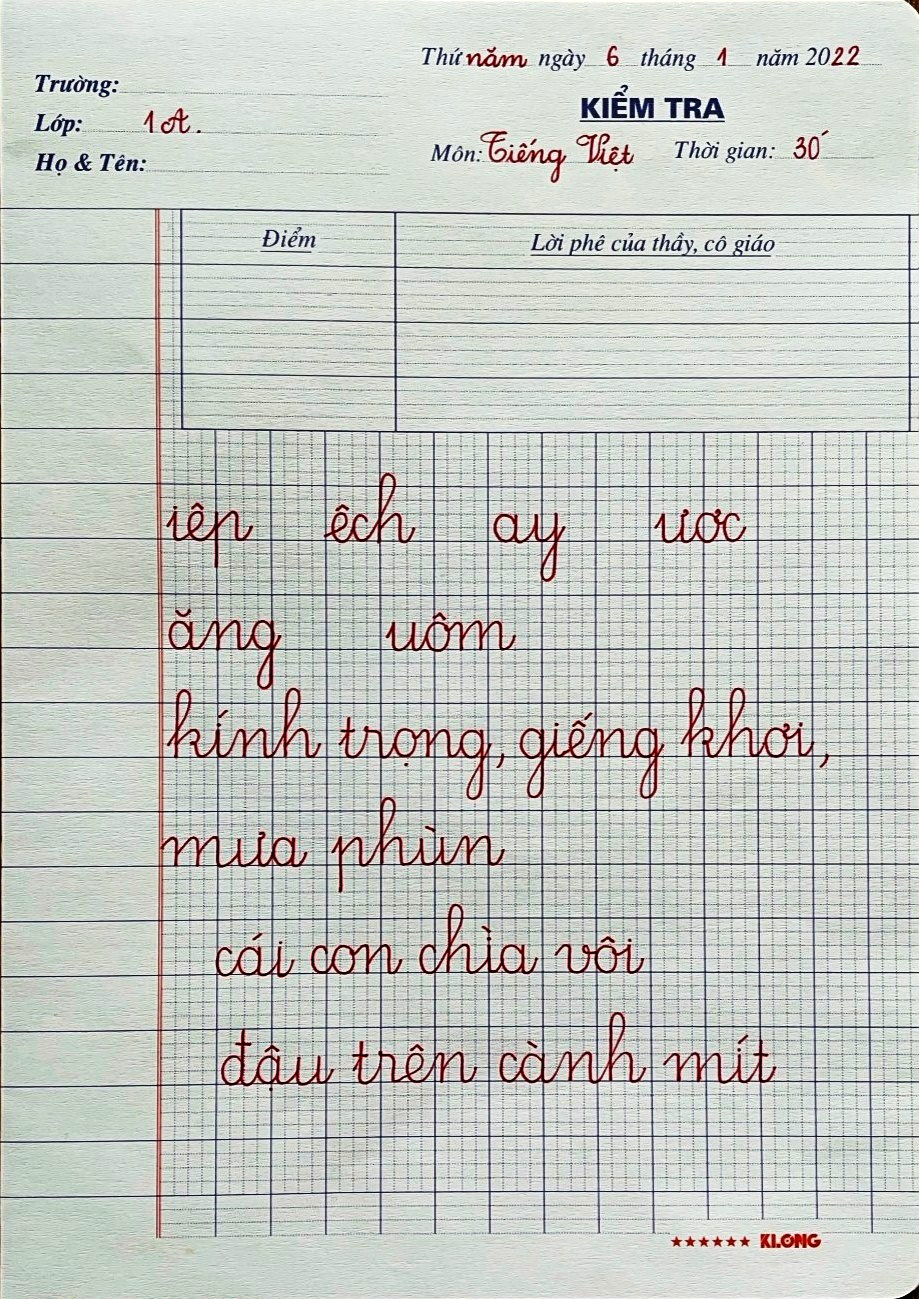 Thứ năm ngày 6 tháng 1 năm 2022
Trường:
KIỂM TRA
Lớp: 1A.
Môn: Tiếng Việt Thời gian: 30'
Họ & Tên:
Điểm Lời phê của thầy, cô giáo
iêp êch ay ươc
ăng uôm
kính trọng, giếng khơi,
mưa phùn
cái con chìa vôi
đậu trên cành mít
★★★★★★ KLONG